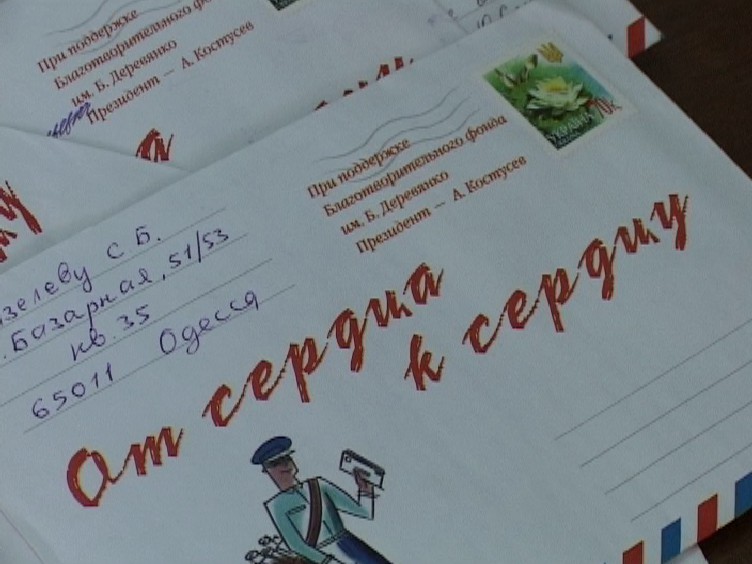 При поддержке
Благотворительного
им. Б. Деревянко
Президент — А. Костусев
При поддержке
Благотворительного фонда
им. Б. Деревянко
Президент — А. Костусев
УКРАЇНА 70к
С. Б.
Базарная, 51/53
кв. 35
65011 Одесса
От сердца
к сердцу